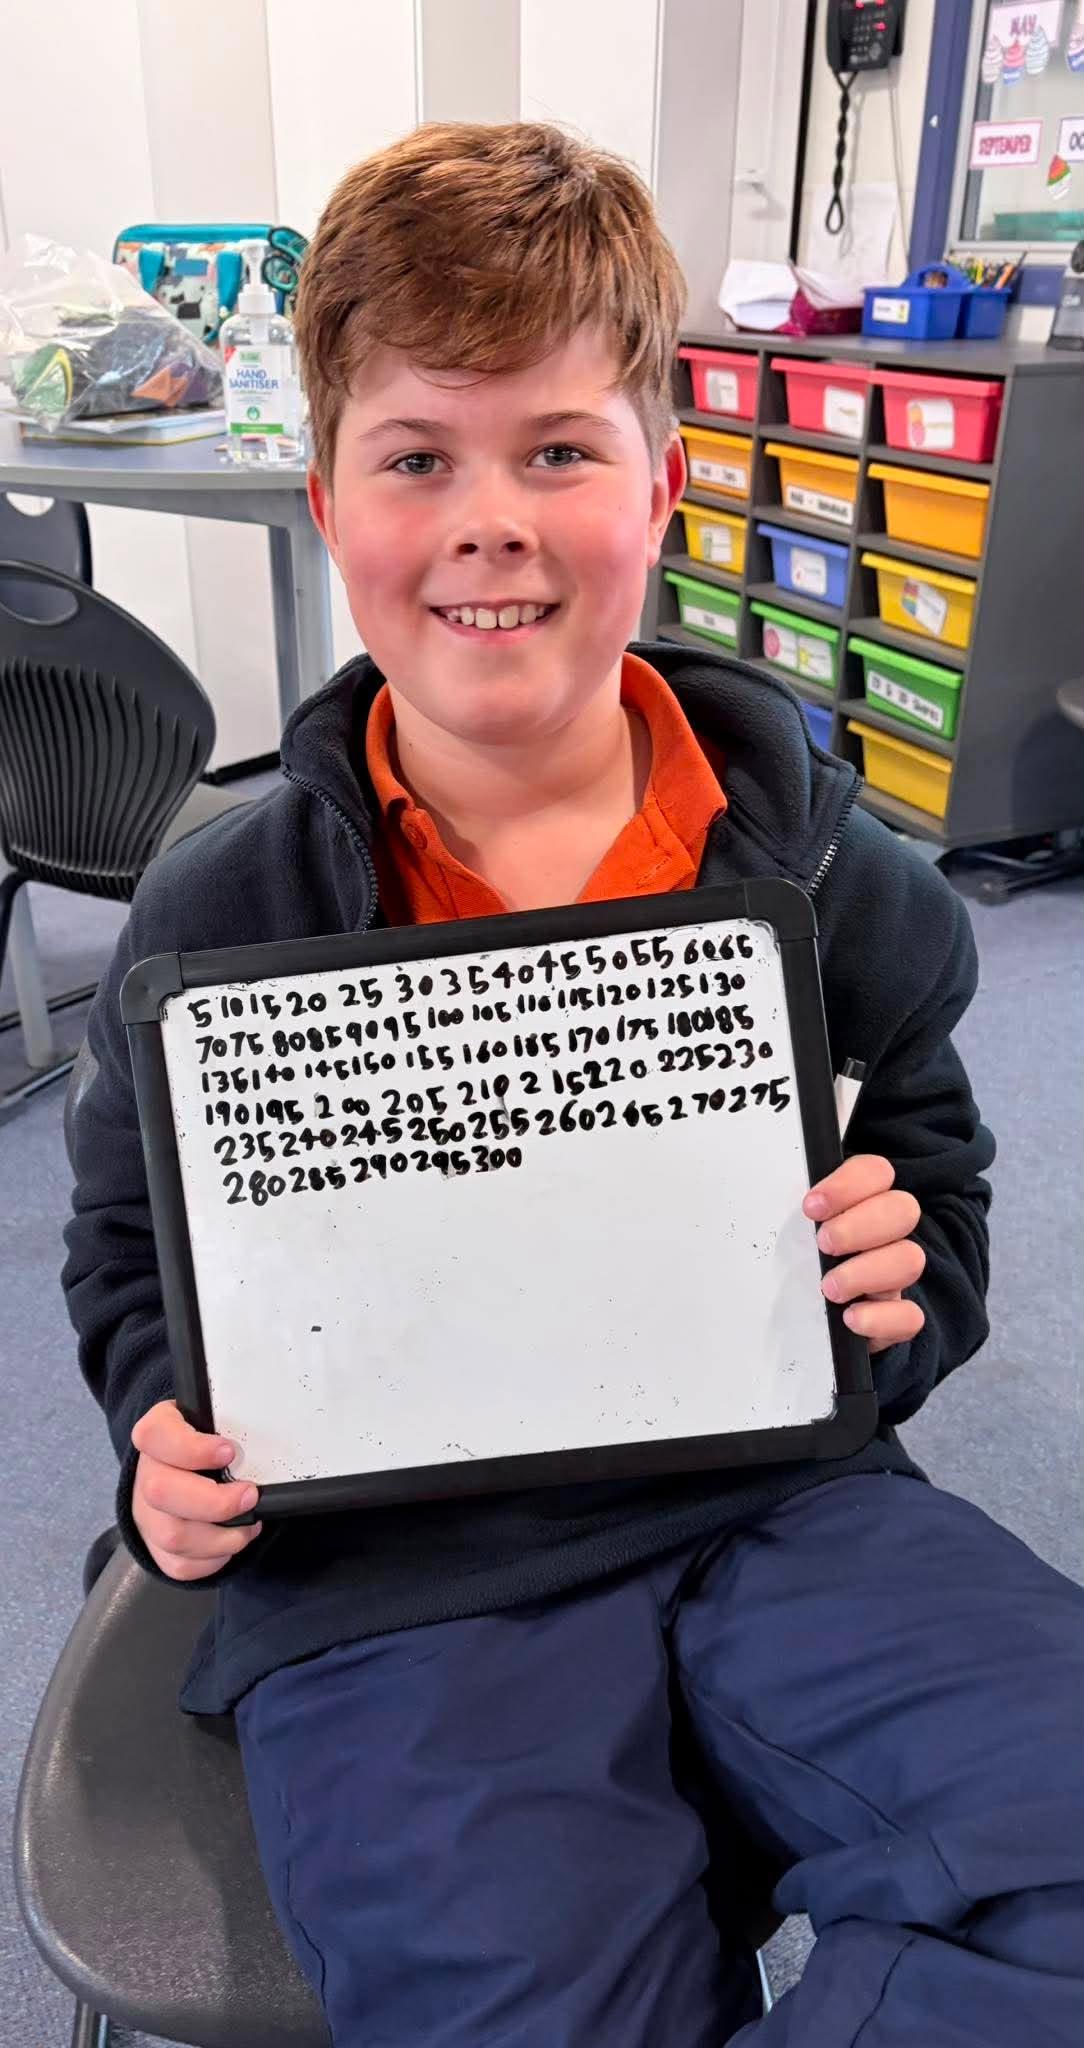 MAY
SEPTEMBER
HAND
SANITISER
5 10 15 20 25 30 35 40 45 50 55 60 65
70 75 80 85 90 95 100 105 110 115 120 125 130
135 140 145 150 155 160 165 170 175 180 185
190 195 200 205 210 215 220 225 230
235 240 245 250 255 260 265 270 275
280 285 290 295 300